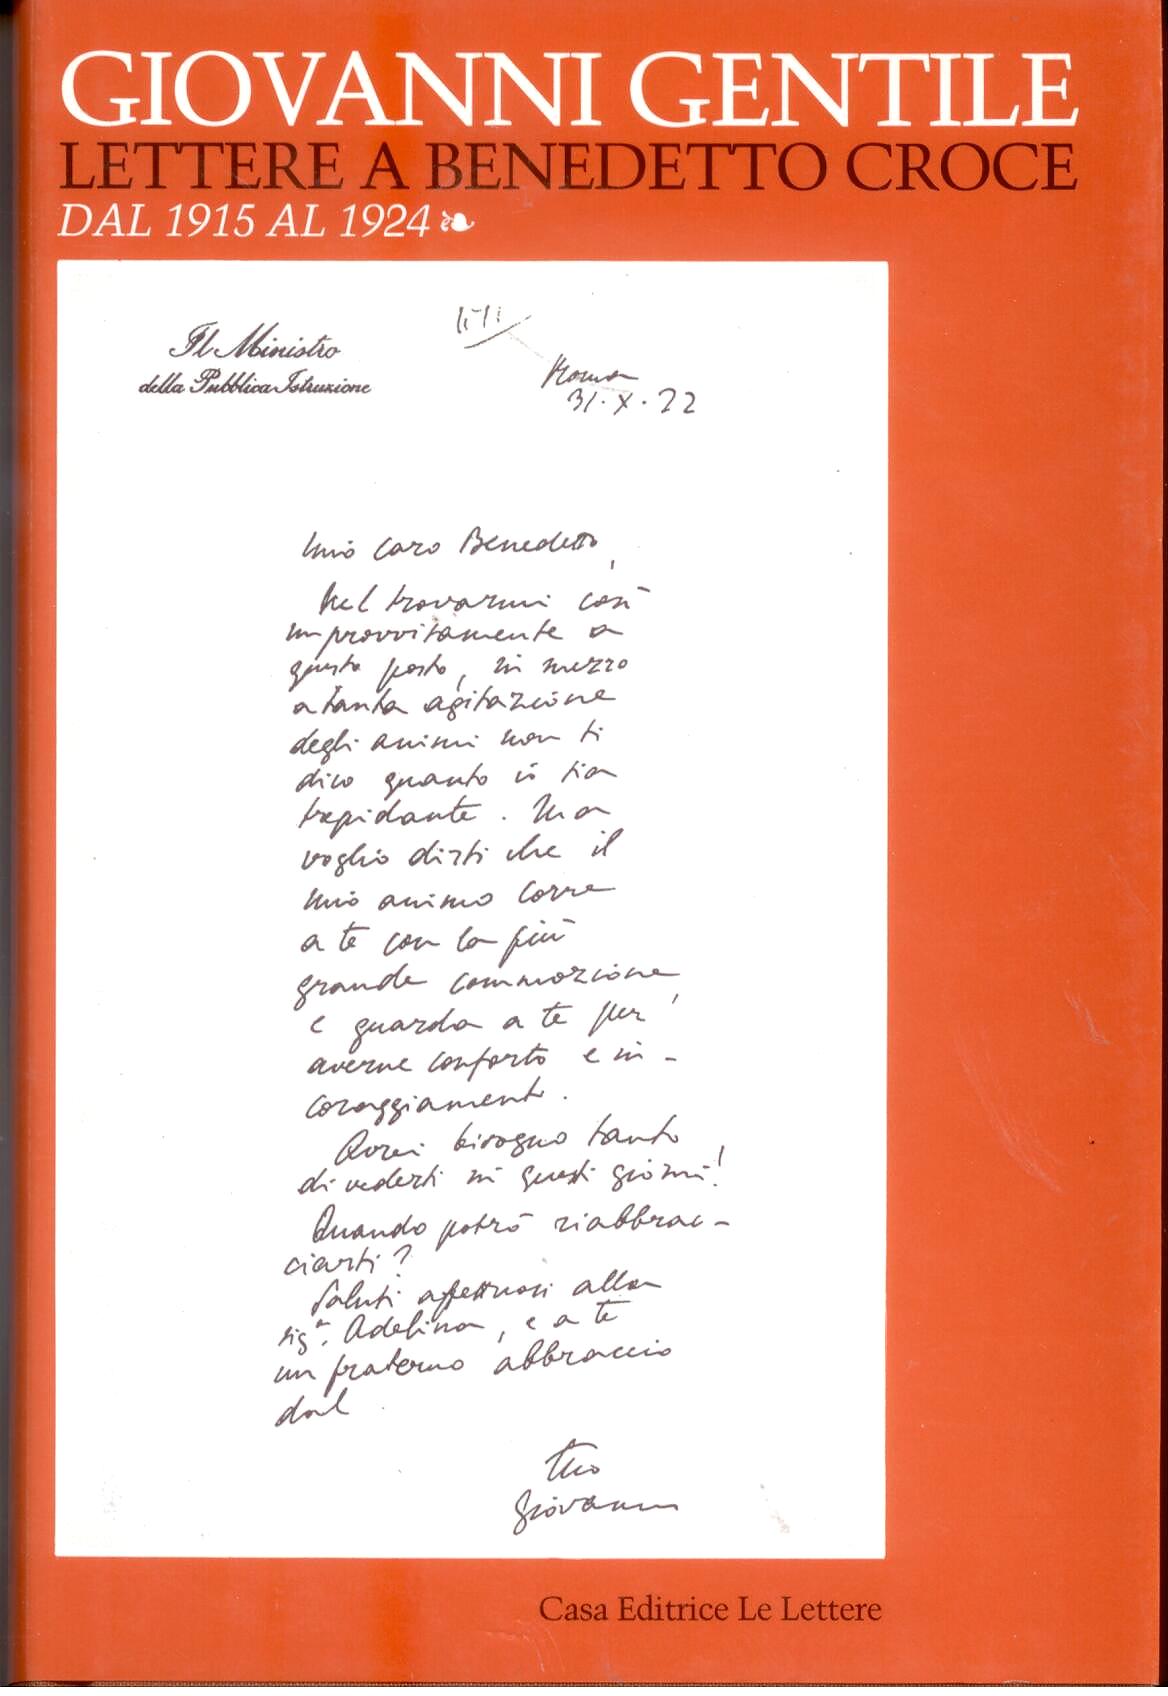 GIOVANNI GENTILE
LETTERE A BENEDETTO CROCE
DAL 1915 AL 1924
Il Ministro
della Pubblica Istruzione
Roma
31·X·22
Mio caro Benedetto,
Nel trovarmi così
improvvisamente a
questo posto, in mezzo
a tanta agitazione
degli animi non ti
dico quanto io sia
trepidante. Ma
voglio dirti che il
mio animo corre
a te con la più
grande commozione,
e guarda a te per
averne conforto e in-
coraggiamento.
Avrei bisogno tanto
di vederti in questi giorni!
Quando potrò riabbrac-
ciarti?
Saluti affettuosi alla
sigª. Adelina, e a te
un fraterno abbraccio
dal
tuo
Giovanni
Casa Editrice Le Lettere